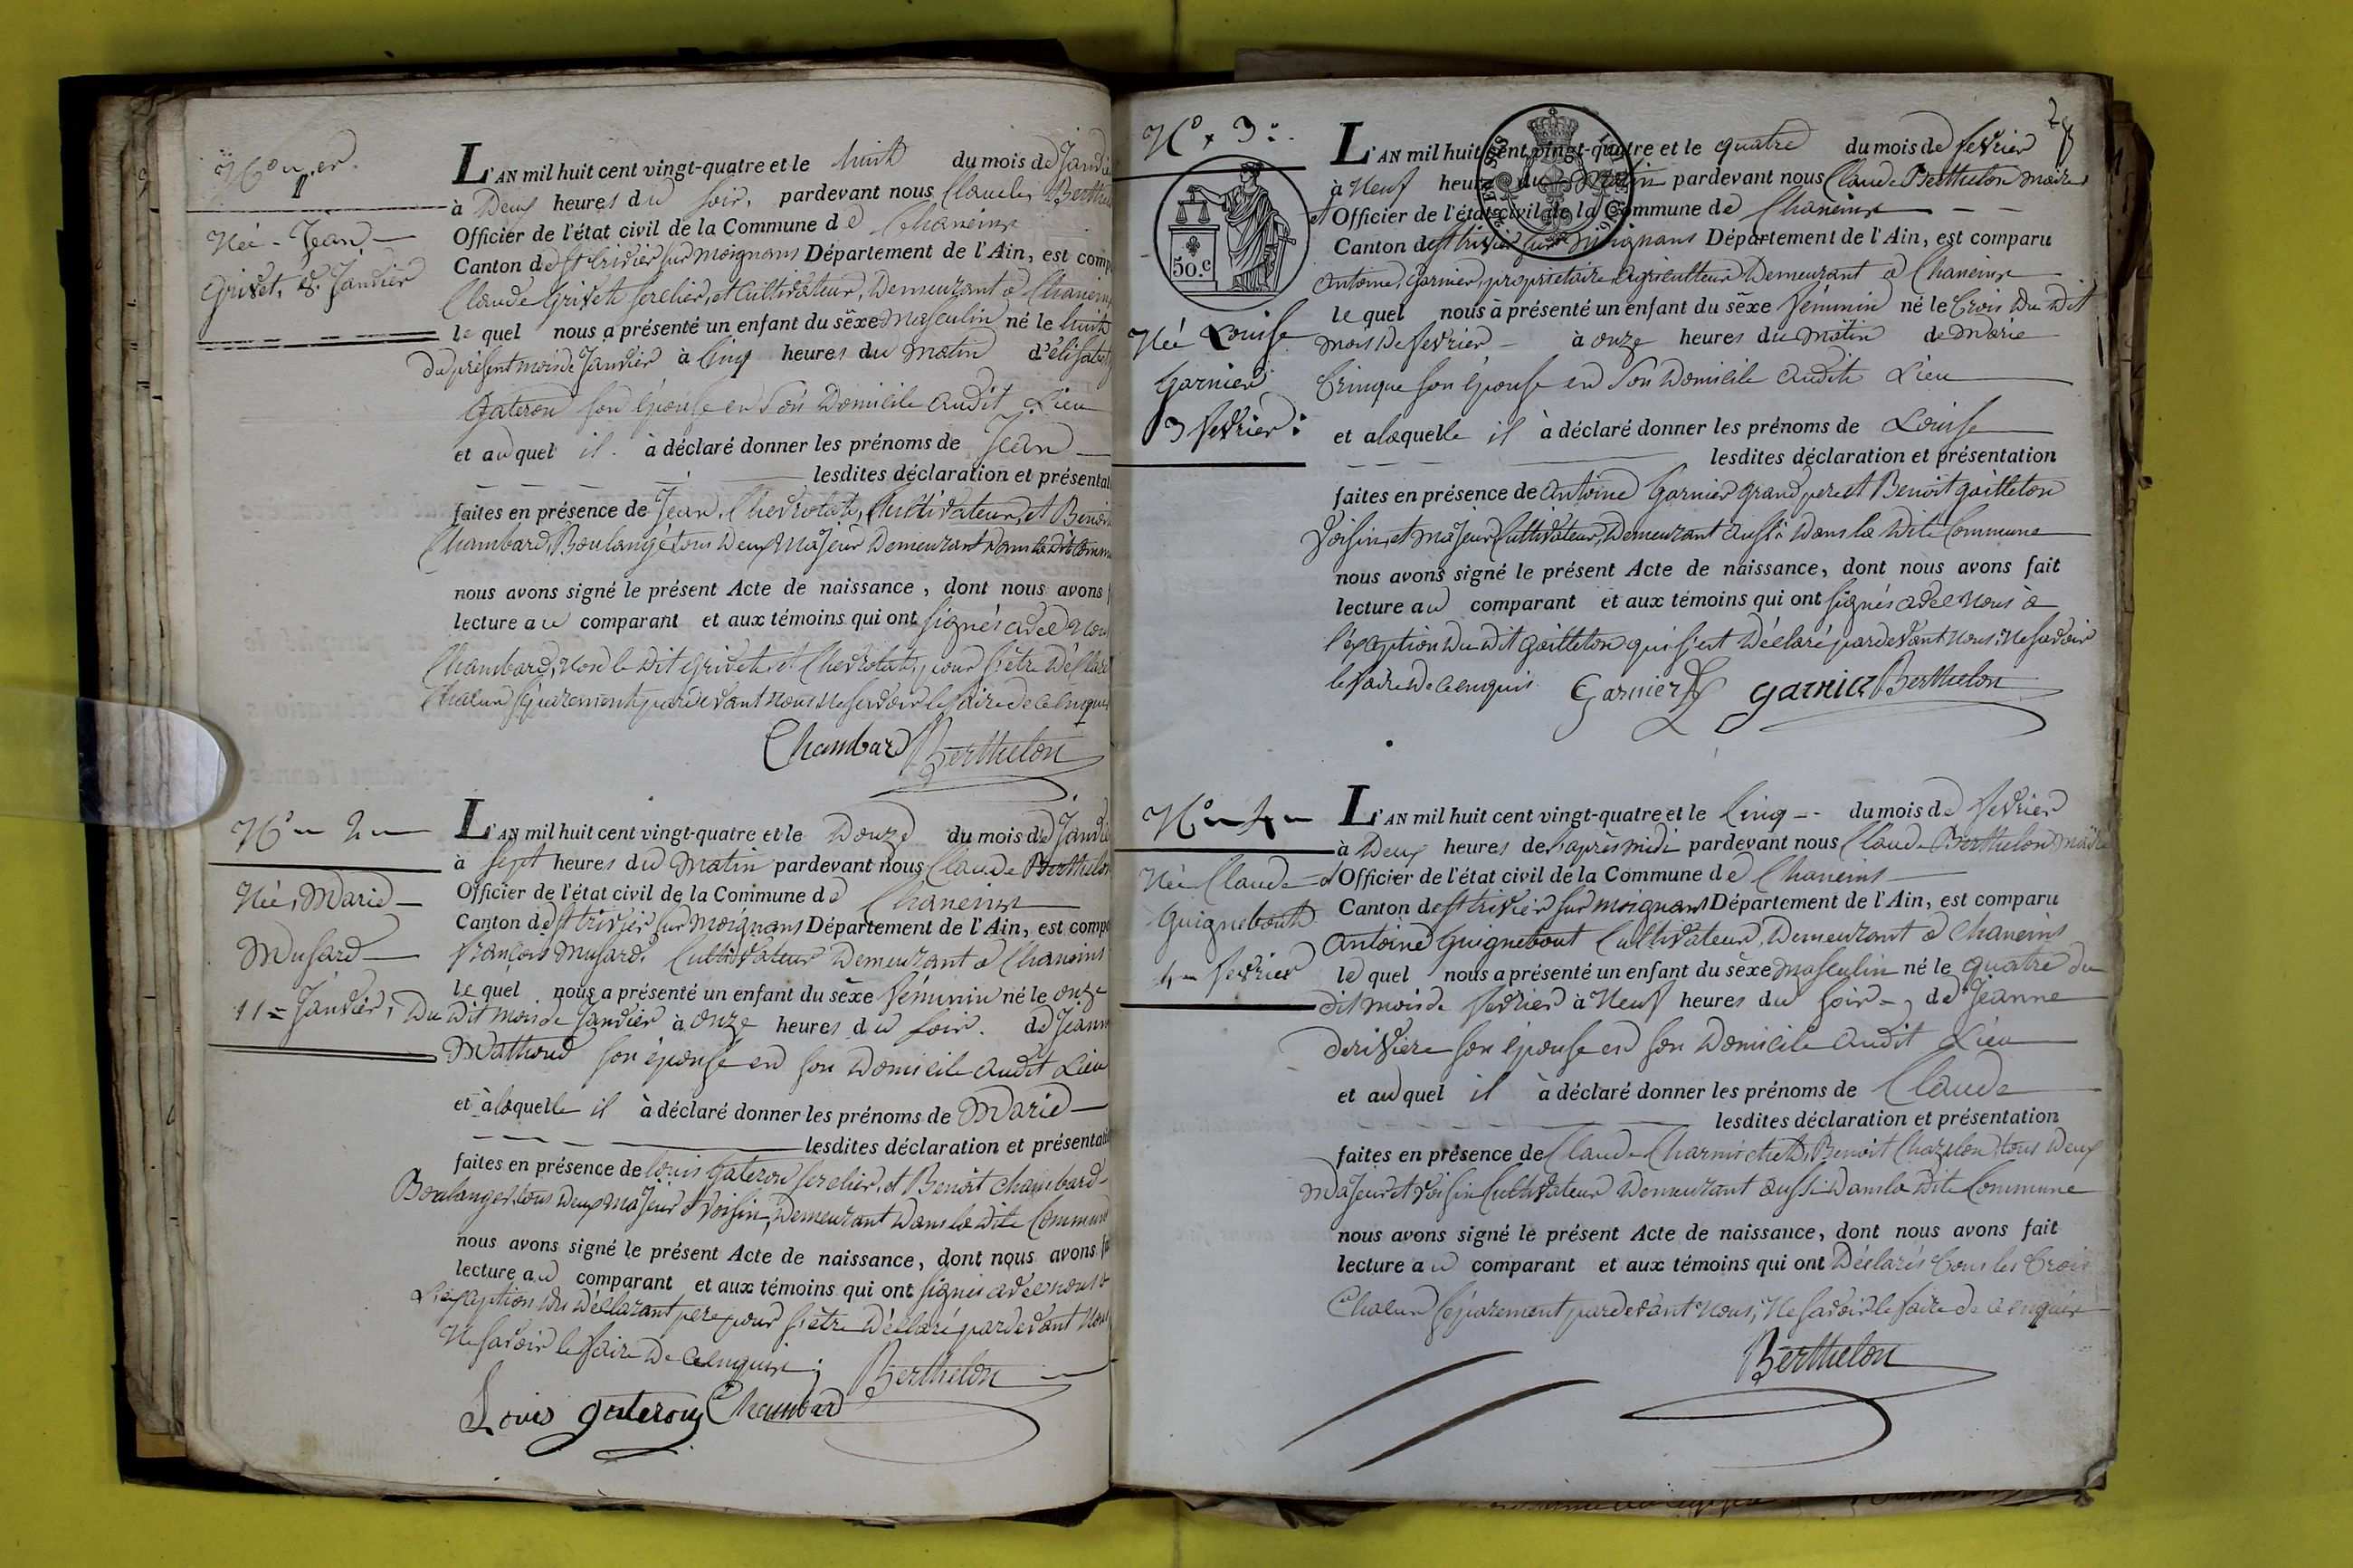 N° 1.er
Née - Jean
Grivet, 8. Janvier
L'AN mil huit cent vingt-quatre et le huit du mois de Janvie
à Deux heures du soir, pardevant nous Claude Berthe
Officier de l'état civil de la Commune de Chaneins
Canton de St trivier sur moignans Département de l'Ain, est comp
Claude Grivet serclier, et Cultivateur, Demeurant a Chanein
le quel nous a présenté un enfant du sèxe Masculin né le huit
du présent mois de Janvier à Cinq heures du matin d'élisabet
Gateron son épouse en son Domicile audit Lieu
et auquel il à déclaré donner les prénoms de Jean
lesdites déclaration et présentat
faites en présence de Jean Chevrolat, Cultivateur, et Benoit
Chambard, Boulangé tous Deux Majeur Demeurant Dans la dit Comm
nous avons signé le présent Acte de naissance, dont nous avons f
lecture au comparant et aux témoins qui ont signés avec Nou
Chambard, non le dit Grivet et Chevrolat, pour s'être Déclaré
Chacun séparement pardevant nous ne savoir le faire de ce enquis
Chambard Berthelon
N° 2
Née, Marie
Musard
11 = Janvier,
L'AN mil huit cent vingt-quatre et le Douze du mois de Janvie
à Sept heures du Matin pardevant nous Claude Berthelon
Officier de l'état civil de la Commune de Chaneins
Canton de St trivier sur Moignans Département de l'Ain, est comp
françois Musard Cultivateur Demeurant a Chaneins
le quel nous a présenté un enfant du sèxe féminin né le onze
Du Dit mois de Janvier à onze heures du soir. de Jeann
Mathoud son épouse en son Domicile audit Lieu
et à laquelle il à déclaré donner les prénoms de Marie
lesdites déclaration et présentati
faites en présence de Louis Gateron serclier, et Benoit Chambard
Boulanger, tous Deux Majeur & voisin, Demeurant Dans la Dite Commune
nous avons signé le présent Acte de naissance, dont nous avons fa
lecture au comparant et aux témoins qui ont signés avec nous à
L'exseption du Déclarant pere pour s'être Déclaré pardevant Nous
Ne savoir le faire De ce enquis ; Berthelon
Louis gateron Chambard
N° 3
50.c
Née Louise
Garnier
3 fevrier
L'AN mil huit cent vingt-quatre et le quatre du mois de fevrier
à Neuf heures du Matin pardevant nous Claude Berthelon Maire
et Officier de l'état civil de la Commune de Chaneins
Canton de St trivier sur Moignans Département de l'Ain, est comparu
Antoine, Garnier, propriétaire Agriculteur Demeurant a Chaneins
le quel nous à présenté un enfant du sèxe féminin né le trois Du Dit
mois De fevrier - à onze heures du Matin de Marie
trinque son épouse en son Domicile audit Lieu
et a laquelle il à déclaré donner les prénoms de Louise
lesdites déclaration et présentation
faites en présence de Antoine Garnier grand pere et Benoit Gailleton
voisin, et Majeur Cultivateur, Demeurant aussi Dans la Dite Commune
nous avons signé le présent Acte de naissance, dont nous avons fait
lecture au comparant et aux témoins qui ont signés avec Nous à
l'exseption Du Dit Gailleton qui s'est Déclaré pardevant Nous, Ne savoir
le faire De ce enquis. Garnier garnier Berthelon
N° 4
Née Claude
Guignebout
4 fevrier
L'AN mil huit cent vingt-quatre et le Cinq du mois de fevrier
à Deux heures de l'après midi pardevant nous Claude Berthelon Maire
et Officier de l'état civil de la Commune de Chaneins
Canton de St trivier sur Moignans Département de l'Ain, est comparu
Antoine Guignebout Cultivateur, Demeurant a Chaneins
le quel nous a présenté un enfant du sèxe Masculin né le quatre du
dit mois de fevrier à Neuf heures du soir - de Jeanne
Derivière son épouse en son Domicile audit Lieu
et auquel il à déclaré donner les prénoms de Claude
lesdites déclaration et présentation
faites en présence de Claude Charmichet, Benoit Chazelon, tous Deux
Majeur et voisin Cultivateur Demeurant aussi Dans la Dite Commune
nous avons signé le présent Acte de naissance, dont nous avons fait
lecture au comparant et aux témoins qui ont Déclarés tous les trois
Chacun séparement pardevant Nous, Ne savoir le faire de ce enquis
Berthelon